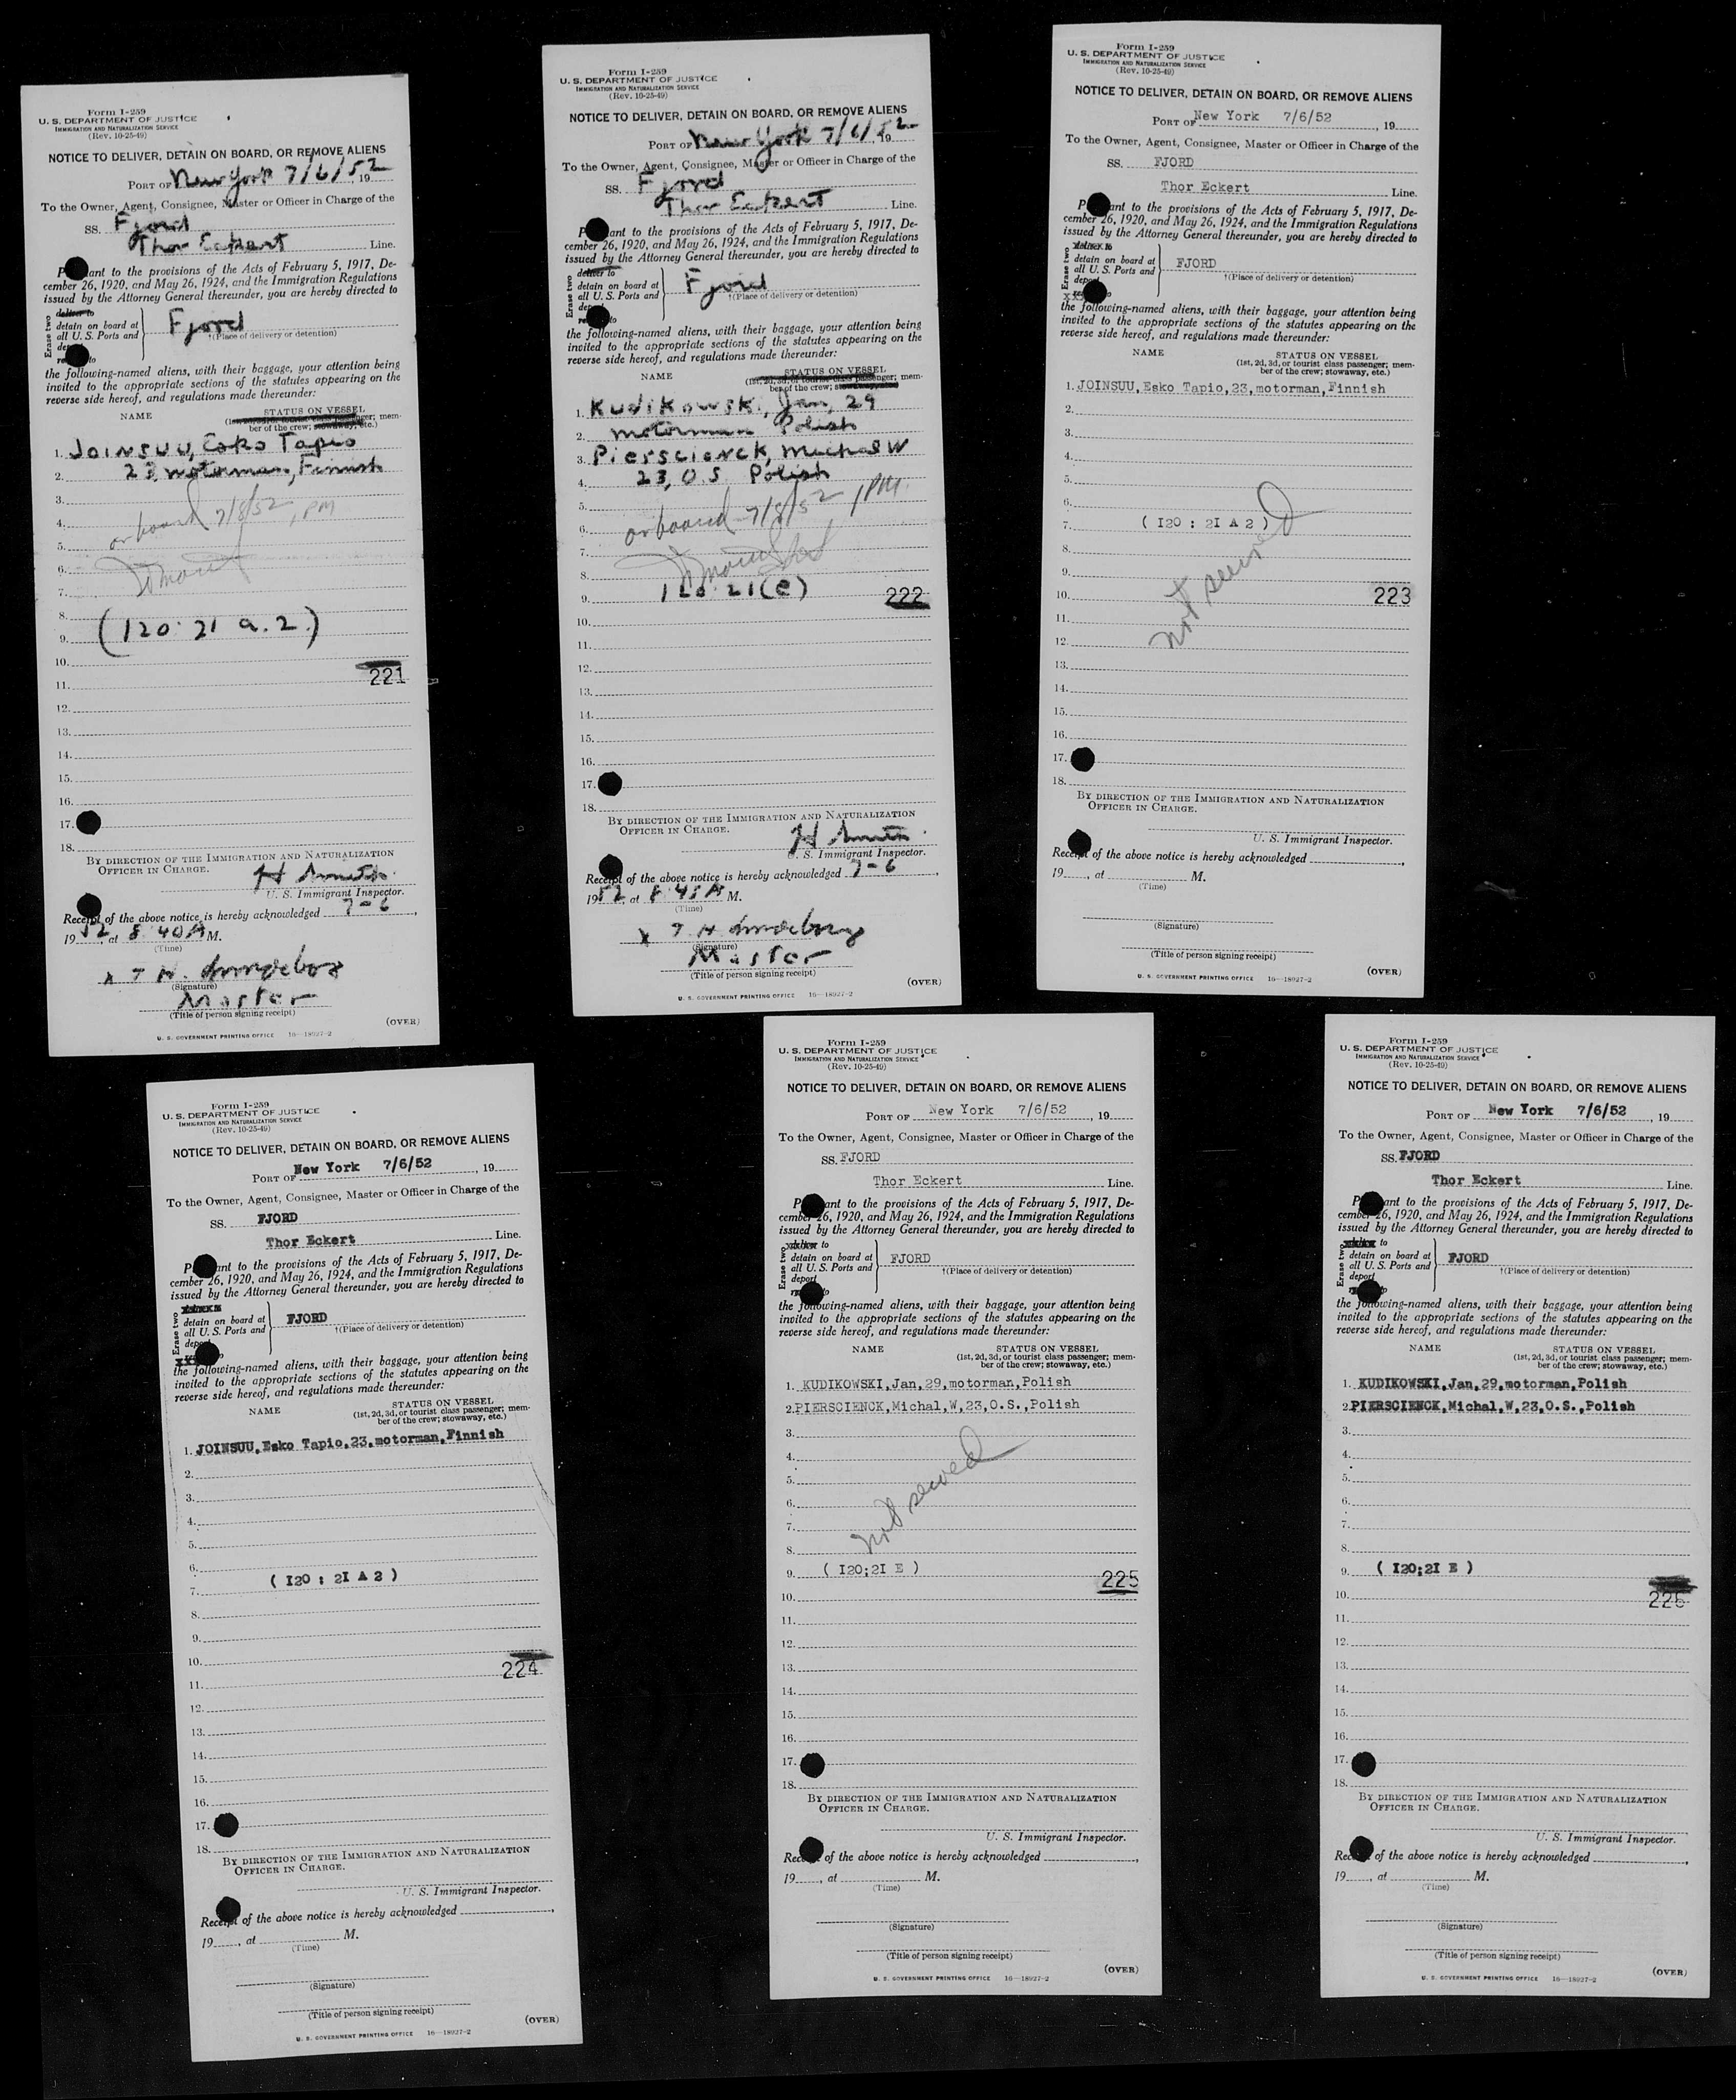 Form I-259
U. S. DEPARTMENT OF JUSTICE
IMMIGRATION AND NATURALIZATION SERVICE
(Rev. 10-25-49)
NOTICE TO DELIVER, DETAIN ON BOARD, OR REMOVE ALIENS
PORT OF New York 7/6/52, 19
To the Owner, Agent, Consignee, Master or Officer in Charge of the
SS. Fjord
Thor Eckert Line.
P ant to the provisions of the Acts of February 5, 1917, De-
cember 26, 1920, and May 26, 1924, and the Immigration Regulations
issued by the Attorney General thereunder, you are hereby directed to
Erase two
deliver to
detain on board at
all U. S. Ports and
Fjord
†(Place of delivery or detention)
the following-named aliens, with their baggage, your attention being
invited to the appropriate sections of the statutes appearing on the
reverse side hereof, and regulations made thereunder:
NAME STATUS ON VESSEL
mem-
ber of the crew; stowaway, etc.)
1. JOINSUU, Esko Tapio
2. 23, motorman, Finnish
3.
4. on board 7/8/52, 1 PM
5.
6.
7.
8.
9. (120:21 a.2.)
10.
11. 221
12.
13.
14.
15.
16.
17.
18.
BY DIRECTION OF THE IMMIGRATION AND NATURALIZATION
OFFICER IN CHARGE.
H Smith
U. S. Immigrant Inspector.
Receipt of the above notice is hereby acknowledged 7-6,
1952, at 8:40 A M.
(Time)
(Signature)
Master
(Title of person signing receipt)
(OVER)
U. S. GOVERNMENT PRINTING OFFICE 16—18927-2
Form I-259
U. S. DEPARTMENT OF JUSTICE
IMMIGRATION AND NATURALIZATION SERVICE
(Rev. 10-25-49)
NOTICE TO DELIVER, DETAIN ON BOARD, OR REMOVE ALIENS
PORT OF New York 7/6/52, 19
To the Owner, Agent, Consignee, Master or Officer in Charge of the
SS. Fjord
Thor Eckert Line.
P ant to the provisions of the Acts of February 5, 1917, De-
cember 26, 1920, and May 26, 1924, and the Immigration Regulations
issued by the Attorney General thereunder, you are hereby directed to
Erase two
deliver to
detain on board at
all U. S. Ports and
Fjord
†(Place of delivery or detention)
the following-named aliens, with their baggage, your attention being
invited to the appropriate sections of the statutes appearing on the
reverse side hereof, and regulations made thereunder:
NAME STATUS ON VESSEL
(1st, 2d, 3d, or tourist class passenger; mem-
ber of the crew; stowaway, etc.)
1. Kudikowski, Jan, 29
2. motorman Polish
3. Pierscienck, Michal W
4. 23, O.S. Polish
5.
6. on board 7/8/52 1PM.
7.
8.
9. 120:21(e) 222
10.
11.
12.
13.
14.
15.
16.
17.
18.
BY DIRECTION OF THE IMMIGRATION AND NATURALIZATION
OFFICER IN CHARGE.
H Smith
U. S. Immigrant Inspector.
Receipt of the above notice is hereby acknowledged 7-6,
1952, at 8:45 A M.
(Time)
(Signature)
Master
(Title of person signing receipt)
(OVER)
U. S. GOVERNMENT PRINTING OFFICE 16—18927-2
Form I-259
U. S. DEPARTMENT OF JUSTICE
IMMIGRATION AND NATURALIZATION SERVICE
(Rev. 10-25-49)
NOTICE TO DELIVER, DETAIN ON BOARD, OR REMOVE ALIENS
PORT OF New York 7/6/52, 19
To the Owner, Agent, Consignee, Master or Officer in Charge of the
SS. FJORD
Thor Eckert Line.
P ant to the provisions of the Acts of February 5, 1917, De-
cember 26, 1920, and May 26, 1924, and the Immigration Regulations
issued by the Attorney General thereunder, you are hereby directed to
Erase two
detain on board at
all U. S. Ports and
FJORD
†(Place of delivery or detention)
the following-named aliens, with their baggage, your attention being
invited to the appropriate sections of the statutes appearing on the
reverse side hereof, and regulations made thereunder:
NAME STATUS ON VESSEL
(1st, 2d, 3d, or tourist class passenger; mem-
ber of the crew; stowaway, etc.)
1. JOINSUU, Esko Tapio, 23, motorman, Finnish
2.
3.
4.
5.
6.
7. ( I20 : 2I A 2 )
8.
9. not served
10. 223
11.
12.
13.
14.
15.
16.
17.
18.
BY DIRECTION OF THE IMMIGRATION AND NATURALIZATION
OFFICER IN CHARGE.
U. S. Immigrant Inspector.
Receipt of the above notice is hereby acknowledged,
19, at M.
(Time)
(Signature)
(Title of person signing receipt)
(OVER)
U. S. GOVERNMENT PRINTING OFFICE 16—18927-2
Form I-259
U. S. DEPARTMENT OF JUSTICE
IMMIGRATION AND NATURALIZATION SERVICE
(Rev. 10-25-49)
NOTICE TO DELIVER, DETAIN ON BOARD, OR REMOVE ALIENS
PORT OF New York 7/6/52, 19
To the Owner, Agent, Consignee, Master or Officer in Charge of the
SS. FJORD
Thor Eckert Line.
P ant to the provisions of the Acts of February 5, 1917, De-
cember 26, 1920, and May 26, 1924, and the Immigration Regulations
issued by the Attorney General thereunder, you are hereby directed to
Erase two
detain on board at
all U. S. Ports and
deport
FJORD
†(Place of delivery or detention)
the following-named aliens, with their baggage, your attention being
invited to the appropriate sections of the statutes appearing on the
reverse side hereof, and regulations made thereunder:
NAME STATUS ON VESSEL
(1st, 2d, 3d, or tourist class passenger; mem-
ber of the crew; stowaway, etc.)
1. JOINSUU, Esko Tapio, 23, motorman, Finnish
2.
3.
4.
5.
6.
7. ( I20 : 2I A 2 )
8.
9.
10.
11. 224
12.
13.
14.
15.
16.
17.
18.
BY DIRECTION OF THE IMMIGRATION AND NATURALIZATION
OFFICER IN CHARGE.
U. S. Immigrant Inspector.
Receipt of the above notice is hereby acknowledged,
19, at M.
(Time)
(Signature)
(Title of person signing receipt)
(OVER)
U. S. GOVERNMENT PRINTING OFFICE 16—18927-2
Form I-259
U. S. DEPARTMENT OF JUSTICE
IMMIGRATION AND NATURALIZATION SERVICE
(Rev. 10-25-49)
NOTICE TO DELIVER, DETAIN ON BOARD, OR REMOVE ALIENS
PORT OF New York 7/6/52, 19
To the Owner, Agent, Consignee, Master or Officer in Charge of the
SS. FJORD
Thor Eckert Line.
P ant to the provisions of the Acts of February 5, 1917, De-
cember 26, 1920, and May 26, 1924, and the Immigration Regulations
issued by the Attorney General thereunder, you are hereby directed to
Erase two
to
detain on board at
all U. S. Ports and
deport
FJORD
†(Place of delivery or detention)
the following-named aliens, with their baggage, your attention being
invited to the appropriate sections of the statutes appearing on the
reverse side hereof, and regulations made thereunder:
NAME STATUS ON VESSEL
(1st, 2d, 3d, or tourist class passenger; mem-
ber of the crew; stowaway, etc.)
1. KUDIKOWSKI, Jan, 29, motorman, Polish
2. PIERSCIENCK, Michal, W, 23, O.S., Polish
3.
4.
5.
6. not served
7.
8.
9. ( I20;2I E ) 225
10.
11.
12.
13.
14.
15.
16.
17.
18.
BY DIRECTION OF THE IMMIGRATION AND NATURALIZATION
OFFICER IN CHARGE.
U. S. Immigrant Inspector.
Receipt of the above notice is hereby acknowledged,
19, at M.
(Time)
(Signature)
(Title of person signing receipt)
(OVER)
U. S. GOVERNMENT PRINTING OFFICE 16—18927-2
Form I-259
U. S. DEPARTMENT OF JUSTICE
IMMIGRATION AND NATURALIZATION SERVICE
(Rev. 10-25-49)
NOTICE TO DELIVER, DETAIN ON BOARD, OR REMOVE ALIENS
PORT OF New York 7/6/52, 19
To the Owner, Agent, Consignee, Master or Officer in Charge of the
SS. FJORD
Thor Eckert Line.
P ant to the provisions of the Acts of February 5, 1917, De-
cember 26, 1920, and May 26, 1924, and the Immigration Regulations
issued by the Attorney General thereunder, you are hereby directed to
Erase two
to
detain on board at
all U. S. Ports and
deport
FJORD
†(Place of delivery or detention)
the following-named aliens, with their baggage, your attention being
invited to the appropriate sections of the statutes appearing on the
reverse side hereof, and regulations made thereunder:
NAME STATUS ON VESSEL
(1st, 2d, 3d, or tourist class passenger; mem-
ber of the crew; stowaway, etc.)
1. KUDIKOWSKI, Jan, 29, motorman, Polish
2. PIERSCIENCK, Michal, W, 23, O.S., Polish
3.
4.
5.
6.
7.
8.
9. ( I20;2I E )
10. 226
11.
12.
13.
14.
15.
16.
17.
18.
BY DIRECTION OF THE IMMIGRATION AND NATURALIZATION
OFFICER IN CHARGE.
U. S. Immigrant Inspector.
Receipt of the above notice is hereby acknowledged,
19, at M.
(Time)
(Signature)
(Title of person signing receipt)
(OVER)
U. S. GOVERNMENT PRINTING OFFICE 16—18927-2